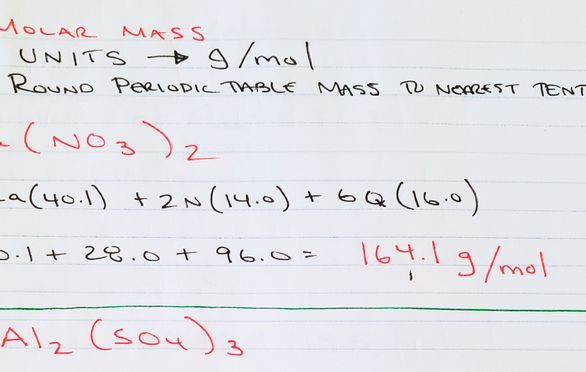 MOLAR MASS
UNITS → g/mol
ROUND PERIODIC TABLE MASS TO NEAREST TENT
(NO3)2
a(40.1) + 2N(14.0) + 6O(16.0)
0.1 + 28.0 + 96.0 = 164.1 g/mol
Al2(SO4)3